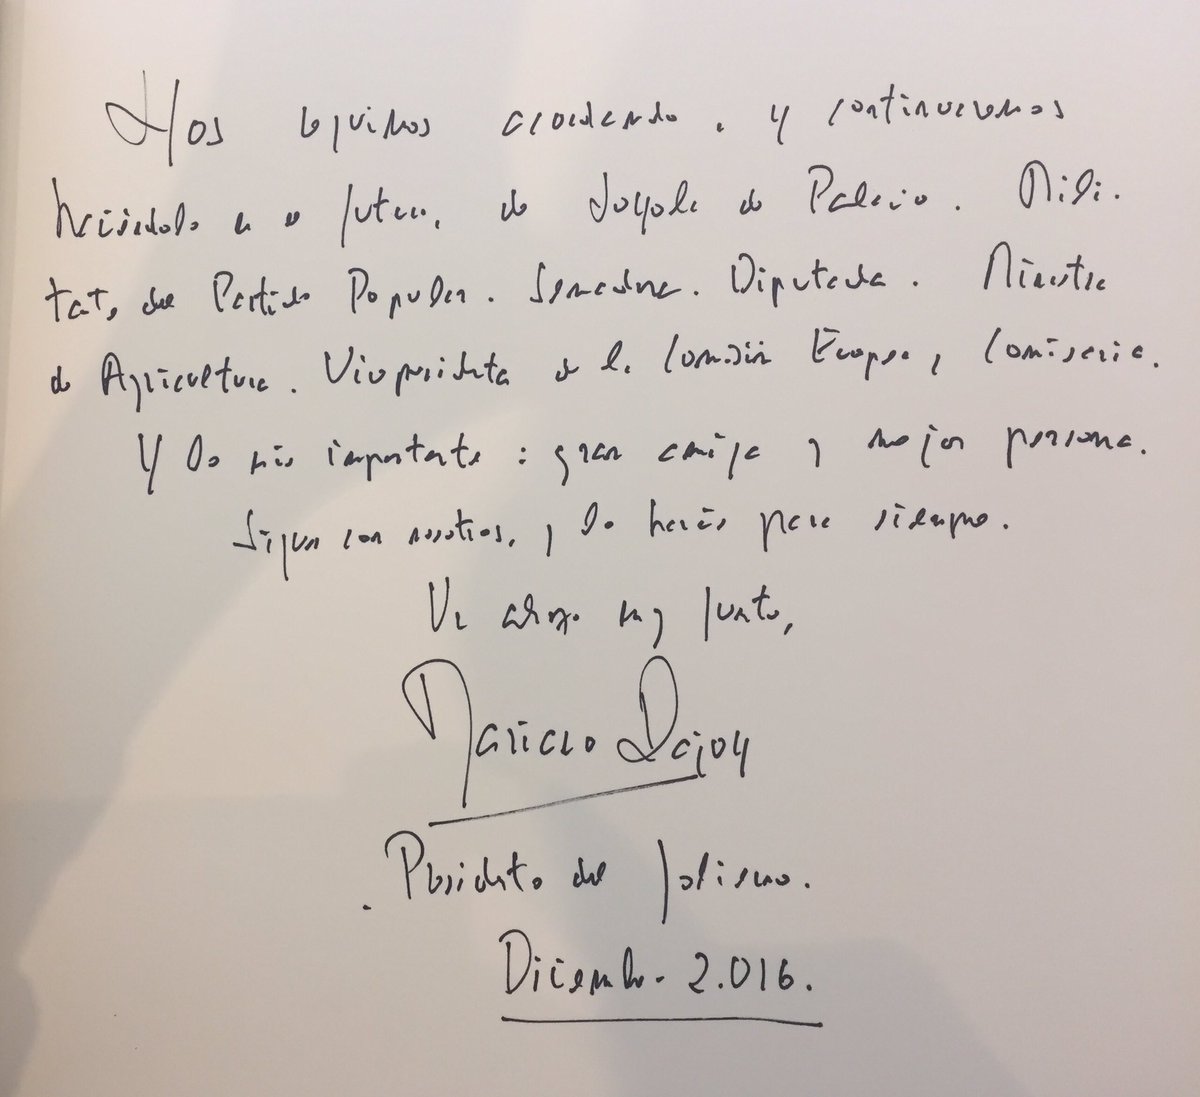 Nos seguimos acordando, y continuaremos
haciéndolo en el futuro, de Loyola de Palacio. Mili-
tante del Partido Popular. Senadora. Diputada. Ministra
de Agricultura. Vicepresidenta de la Comisión Europea, Comisaria.
Y lo más importante: gran amiga y mejor persona.
Sigues con nosotros, y lo harás para siempre.
Un abrazo muy fuerte,
Mariano Rajoy
Presidente del Gobierno.
Diciembre 2.016.